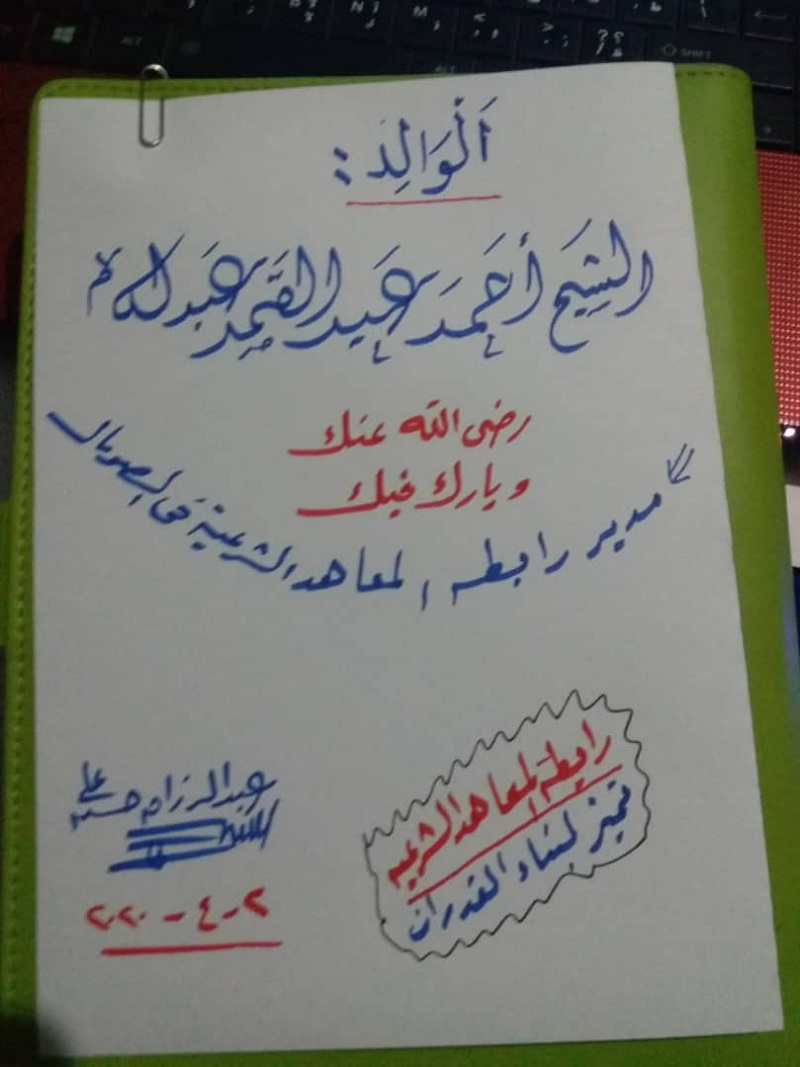 اَلْوَالِدْ :
الشِيَخ أَحَمدَ عَبد الصَمد عَبد الله
رضى الله عنك
وبارك فيك
مدير رابطة المعاهد الشرعية في الصومال
رابطة المعاهد الشرعية
تميز لبناء القدرات
عبد الرزاق حسين علي
٢-٤-٢٠٢٠
N M
ALT
ALT
SHIFT